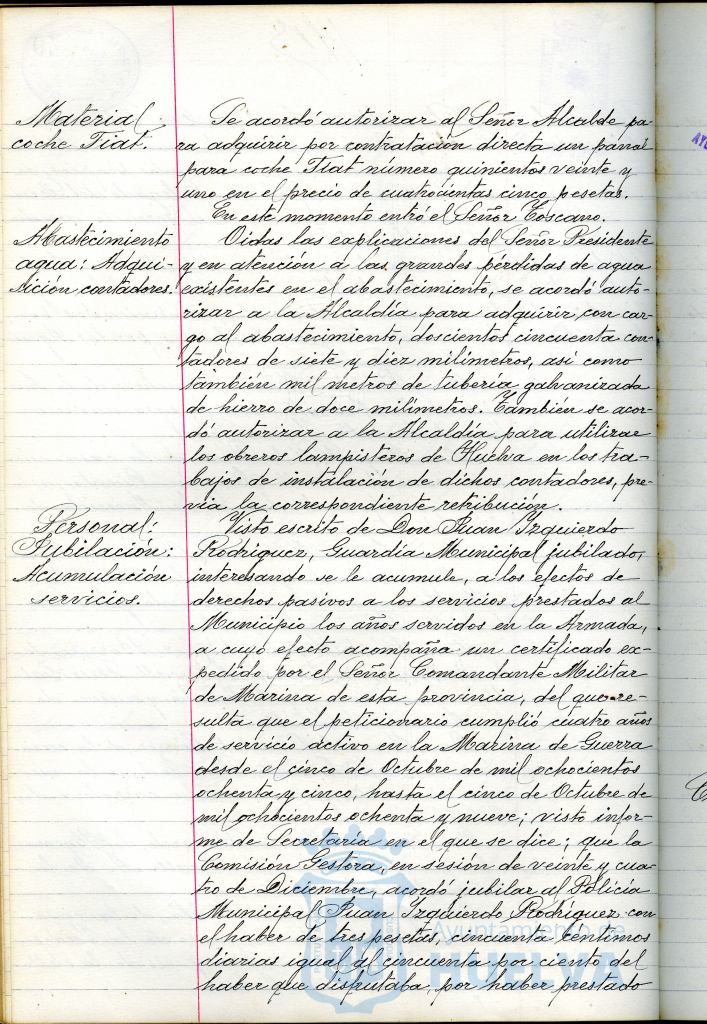 Material
coche Fiat.
Se acordó autorizar al Señor Alcalde pa-
ra adquirir por contratación directa un panal
para coche Fiat número quinientos veinte y
uno en el precio de cuatrocientas cinco pesetas.
En este momento entró el Señor Toscano.
Abastecimiento
agua: Adqui-
sición contadores.
Oidas las explicaciones del Señor Presidente
y en atención a las grandes pérdidas de agua
existentes en el abastecimiento, se acordó auto-
rizar a la Alcaldía para adquirir con car-
go al abastecimiento, doscientos cincuenta con-
tadores de siete y diez milímetros, así como
también mil metros de tubería galvanizada
de hierro de doce milímetros. También se acor-
dó autorizar a la Alcaldía para utilizar
los obreros lampisteros de Huelva en los tra-
bajos de instalación de dichos contadores, pre-
via la correspondiente retribución.
Personal:
Jubilación:
Acumulación
servicios.
Visto escrito de Don Juan Izquierdo
Rodriguez, Guardia Municipal jubilado,
interesando se le acumule, a los efectos de
derechos pasivos a los servicios prestados al
Municipio los años servidos en la Armada,
a cuyo efecto acompaña un certificado ex-
pedido por el Señor Comandante Militar
de Marina de esta provincia, del que re-
sulta que el peticionario cumplió cuatro años
de servicio activo en la Marina de Guerra
desde el cinco de Octubre de mil ochocientos
ochenta y cinco, hasta el cinco de Octubre de
mil ochocientos ochenta y nueve; visto infor-
me de Secretaría en el que se dice; que la
Comisión Gestora, en sesión de veinte y cua-
tro de Diciembre, acordó jubilar al Policia
Municipal Juan Izquierdo Rodríguez con
el haber de tres pesetas, cincuenta centimos
diarias igual al cincuenta por ciento del
haber que disfrutaba, por haber prestado
Ayuntamiento de
HUELVA